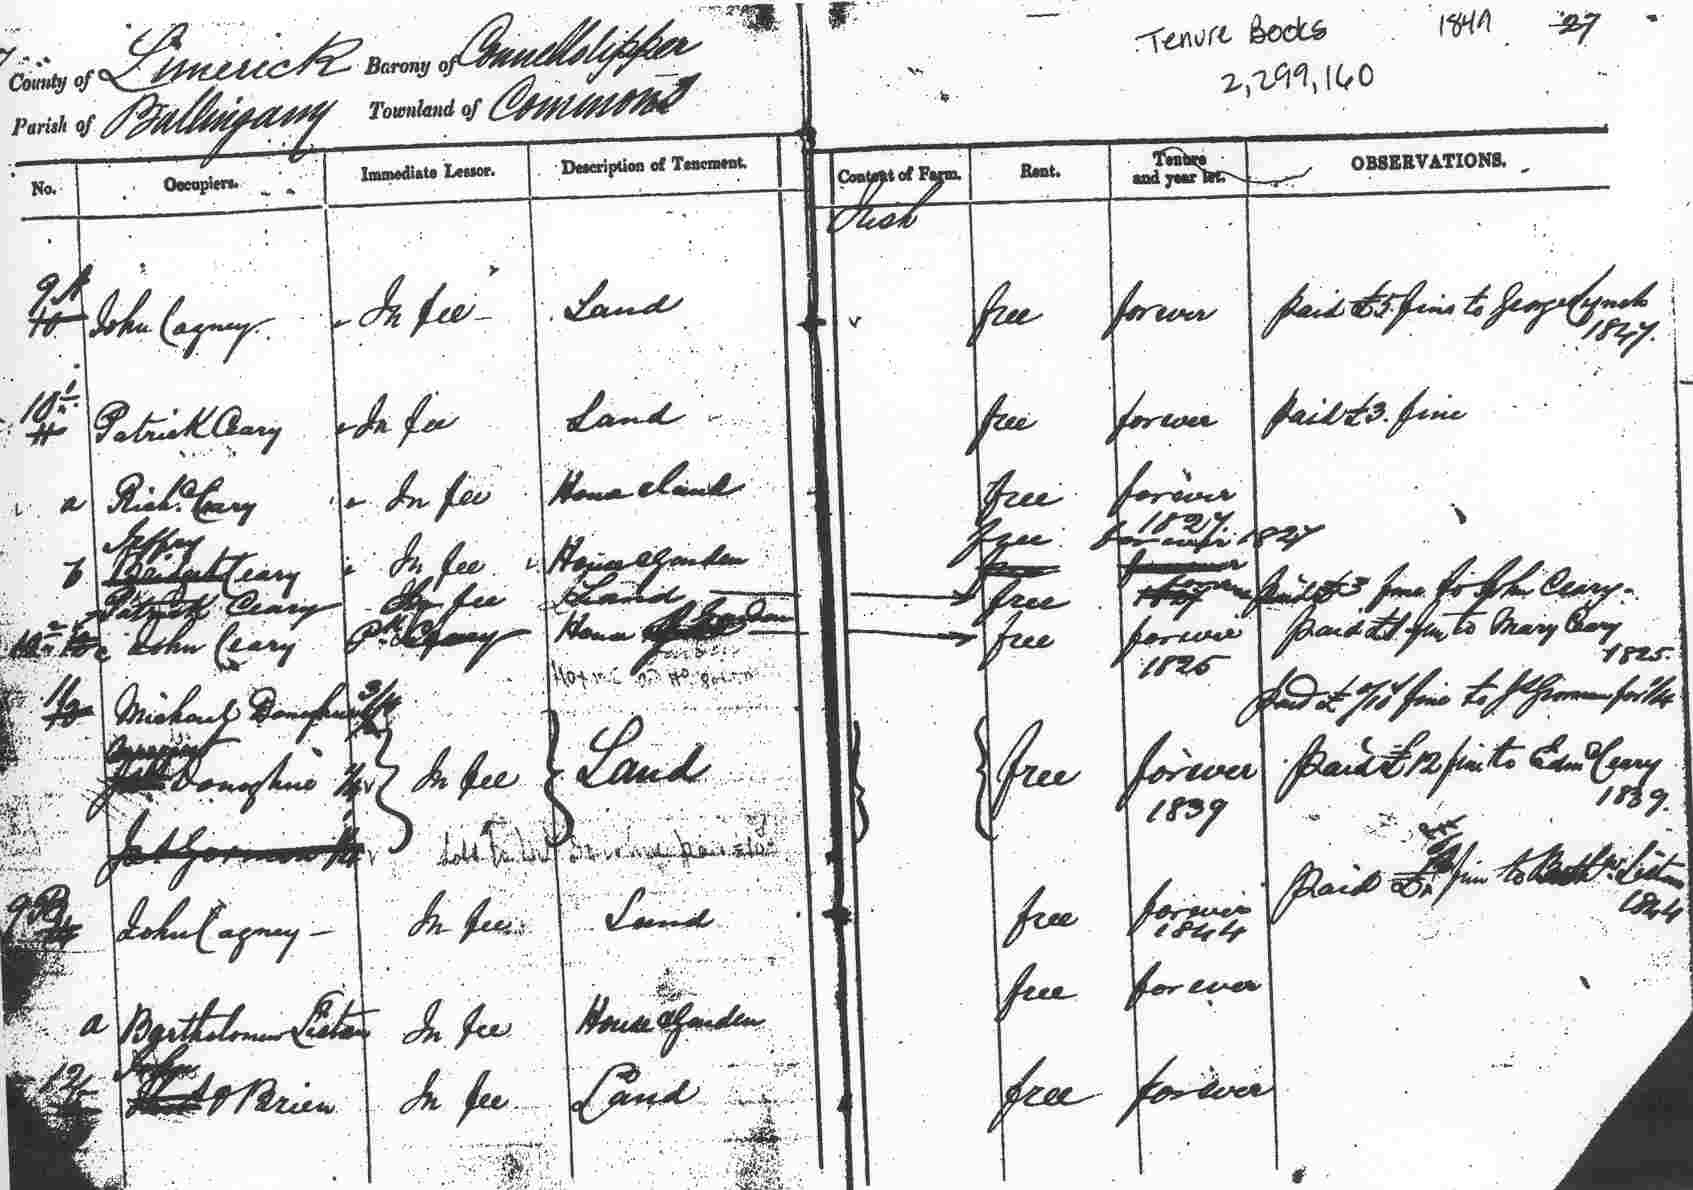 Tenure Books 1849 27
2,299,160
County of Limerick Barony of Connello Upper
Parish of Ballingarry Townland of Commons
No. Occupiers. Immediate Lessor. Description of Tenement. Content of Farm. Rent. Tenure and year let. OBSERVATIONS.
Irish
9A
10 John Cagney. In fee Land free forever paid £5 fine to George Lynch
1827.
10
11 Patrick Ceary In fee Land free forever paid £3. fine
a Richd. Ceary In fee House & land free forever
1827.
Jeffry free forever 1827
b Bridget Ceary In fee House & Garden
Patrick Ceary In fee Land free forever Paid £3 fine to John Ceary
c John Ceary House free forever paid £1 fine to Mary Ceary
1825 1825.
Michael Donoghue 3/4 paid £ fine to Js Gorman for 1/4
Donoghue In fee Land free forever paid £12 fine to Edmd Ceary
1839 1839.
Jas Gorman 1/4
paid £ fine to Barthw. Liston
9B John Cagney In fee Land free forever 1844
1844
a Bartholomew Liston In fee House & Garden free forever
John
12 O'Brien In fee Land free forever